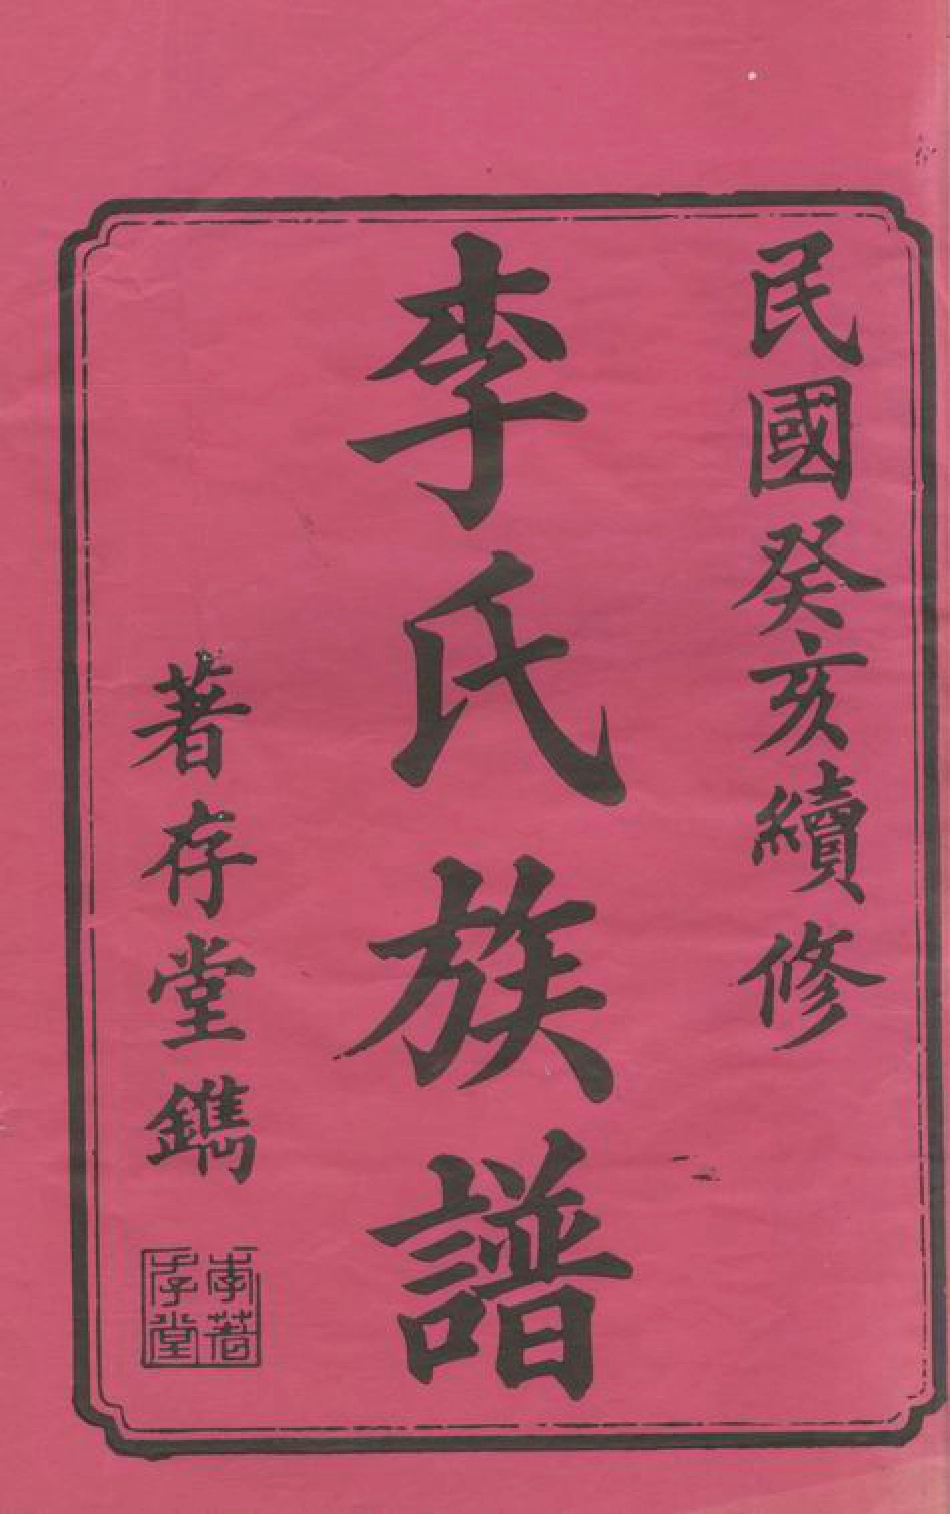 民國癸亥續修
李氏族譜
著存堂鐫
李著
存堂